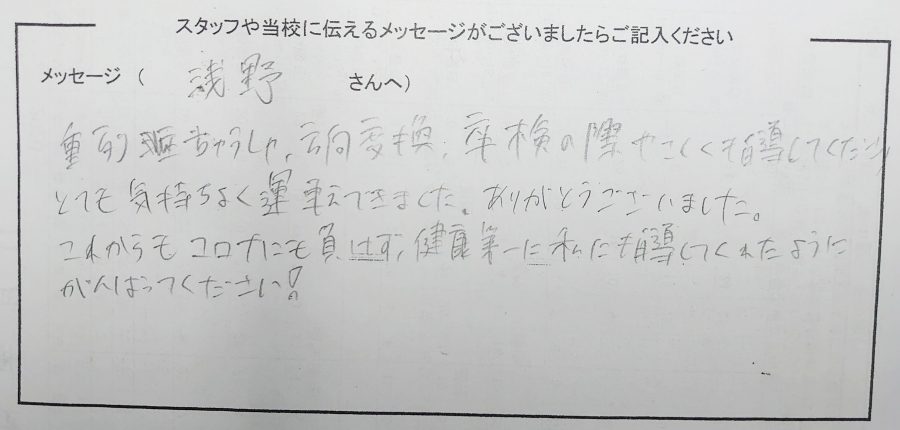 スタッフや当校に伝えるメッセージがございましたらご記入ください
メッセージ ( 浅野 さんへ)
ちゅうしゃ、方向変換、卒検の際やさしくも指導してくださり
とても気持ちよく運転できました。ありがとうございました。
これからもコロナにも負けず、健康第一に私にも指導してくれたように
がんばってください!